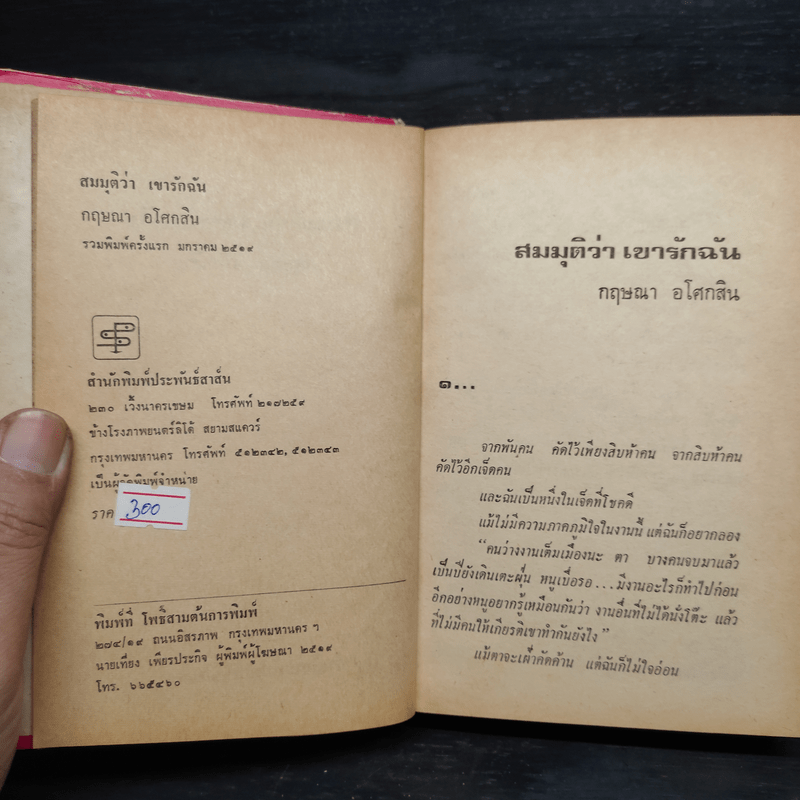 สมมุติว่า เขารักฉัน
กฤษณา อโศกสิน
รวมพิมพ์ครั้งแรก มกราคม ๒๕๑๙
สำนักพิมพ์ประพันธ์สาส์น
๒๓๐ เวิ้งนาครเขษม โทรศัพท์ ๒๑๘๒๕๙
ข้างโรงภาพยนตร์ลิโด้ สยามสแควร์
กรุงเทพมหานคร โทรศัพท์ ๕๑๒๓๔๒, ๕๑๒๓๔๓
เป็นผู้จัดพิมพ์จำหน่าย
ราค
300
พิมพ์ที่ โพธิ์สามต้นการพิมพ์
๒๗๔/๑๙ ถนนอิสรภาพ กรุงเทพมหานคร ฯ
นายเที่ยง เพียรประกิจ ผู้พิมพ์ผู้โฆษณา ๒๕๑๙
โทร. ๖๖๕๔๖๐
สมมุติว่า เขารักฉัน
กฤษณา อโศกสิน
๑...
จากพันคน คัดไว้เพียงสิบห้าคน จากสิบห้าคน
คัดไว้อีกเจ็ดคน
และฉันเป็นหนึ่งในเจ็ดที่โชคดี
แม้ไม่มีความภาคภูมิใจในงานนี้ แต่ฉันก็อยากลอง
“คนว่างงานเต็มเมืองนะ ตา บางคนจบมาแล้ว
เป็นปียังเดินเตะฝุ่น หนูเบื่อรอ...มีงานอะไรก็ทำไปก่อน
อีกอย่างหนูอยากรู้เหมือนกันว่า งานอื่นที่ไม่ได้นั่งโต๊ะ แล้ว
ที่ไม่มีคนให้เกียรติเขาทำกันยังไง”
แม้ตาจะเฝ้าคัดค้าน แต่ฉันก็ไม่ใจอ่อน